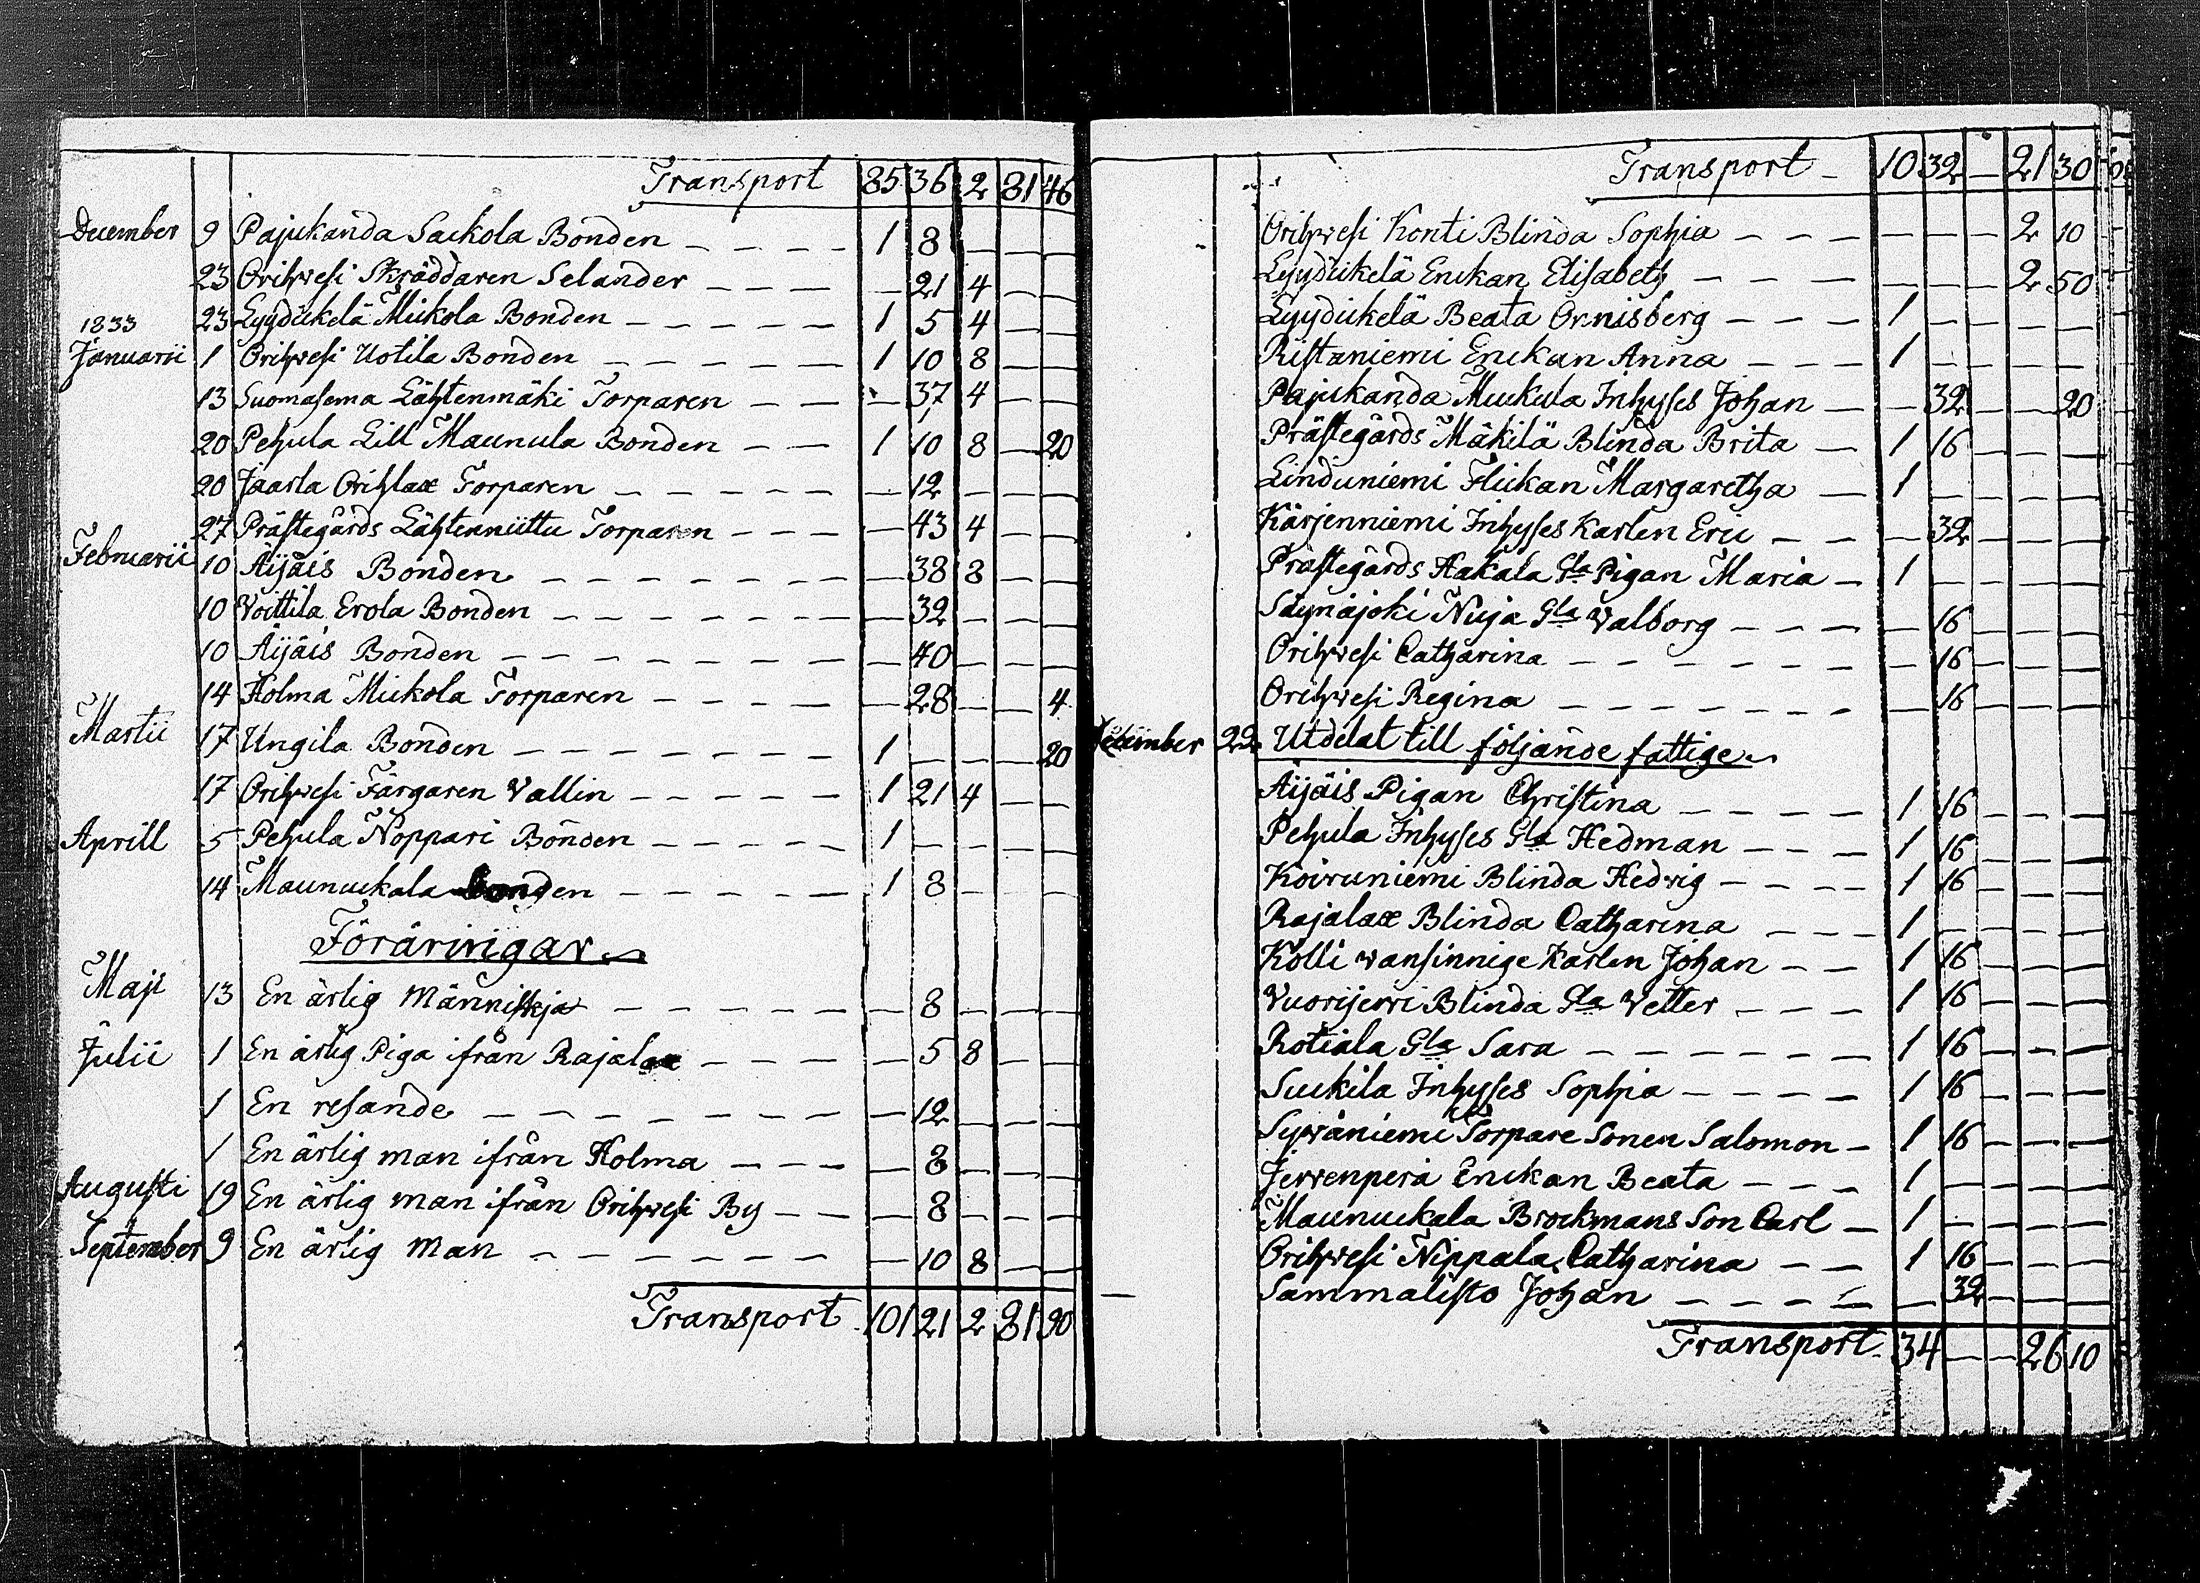 Transport 85 36 2 81 46
December 9 Pajukanda Sackola Bonden – – – – 1 8 – – –
23 Orihvesi Skräddaren Selander – – – – 21 4 – –
23 Lyydickelä Mickola Bonden – – – – – 1 5 4 – –
1833
Januarii 1 Orihvesi Uotila Bonden – – – – – 1 10 8 – –
13 Suomasema Lähtenmäki Torparen – – – 37 4 – –
20 Pehula Lill Maunula Bonden – – 1 10 8 – 20
20 Jaarla Orihlax Torparen – – – – – – 12 – – –
27 Prästegårds Lähtenniittu Torparen – – – – 43 4 – –
Februarii 10 Äijäis Bonden – – – – – – – – 38 8 – –
10 Voittila Erola Bonden – – – – – – – 32 – – –
10 Äijäis Bonden – – – – – – – – 40 – – –
14 Holma Mickola Torparen – – – – – – 28 – – 4
Martii 17 Ungila Bonden – – – – – – – 1 – – – 20
17 Orihvesi Färgaren Vallin – – – – – 1 21 4 – –
Aprill 5 Pehula Noppari Bonden – – – – – 1 – – – –
14 Maunuckala Bonden – – – – – 1 8 – – –
Föräringar
Maji 13 En ärlig Människja – – – – – – 8 – – –
Julii 1 En ärlig Piga ifrån Rajalax – – – – – 5 8 – –
1 En resande – – – – – – – – 12 – – –
1 En ärlig man ifrån Holma – – – – 8 – – –
Augusti 19 En ärlig man ifrån Orihvesi By – – – 8 – – –
September 9 En ärlig Man – – – – – – – 10 8 – –
Transport 101 21 2 81 90
Transport – 10 32 – 21 30
Orihvesi Konti Blinda Sophia – – – – – – 2 10
Lyydickelä Enckan Elisabeth – – – – – – 2 50
Lyydickelä Beata Ornisberg – – – 1 – – – –
Ristaniemi Enckan Anna – – – 1 – – – –
Pajukanda Muckula Inhyses Johan – – 32 – – 20
Prästegårds Mäkilä Blinda Brita – 1 16 – – –
Linduniemi Flickan Margaretha – 1 – – – –
Kärjenniemi Inhyses Karlen Eric – – – 32 – – –
Prästegårds Hakala Gla Pigan Maria – 1 – – – –
Säynäjoki Nuja Gla Valborg – – – – 16 – – –
Orihvesi Catharina – – – – – – – 16 – – –
Orihvesi Regina – – – – – – – – 16 – – –
December 22 Utdelat till följande fattige
Äijäis Pigan Christina – – – – 1 16 – – –
Pehula Inhyses Gla Hedman – – – 1 16 – – –
Koivuniemi Blinda Hedvig – – – – 1 16 – – –
Rajalax Blinda Catharina – – – 1 – – – –
Kolli vansinnige Karlen Johan – – 1 16 – – –
Vuorijervi Blinda Gla Vetter – – – 1 16 – – –
Rotiala Gla Sara – – – – – – 1 16 – – –
Suckila Inhyses Sophia – – – – 1 16 – – –
Syväniemi Torpare Sonen Salomon – 1 16 – – –
Jervenperä Enckan Beata – – – 1 – – – –
Maunuckala Brockmans Son Carl – 1 – – – –
Orihvesi Nippala Catharina – – 1 16 – – –
Sammalisto Johan – – – – – 32 – – –
Transport 34 – – 26 10